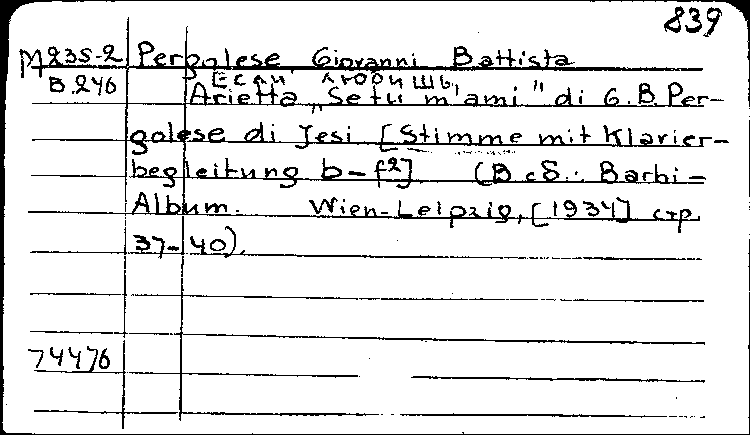 839
M235-2 Pergolese Giovanni Battista
B.246 Если любишь
Arietta „Se tu m'ami" di G. B. Per-
golese di Jesi [Stimme mit Klavier-
begleitung b-f²] (В сб.: Barbi-
Album. Wien-Leipzig, [1934] стр.
37-40).
74476